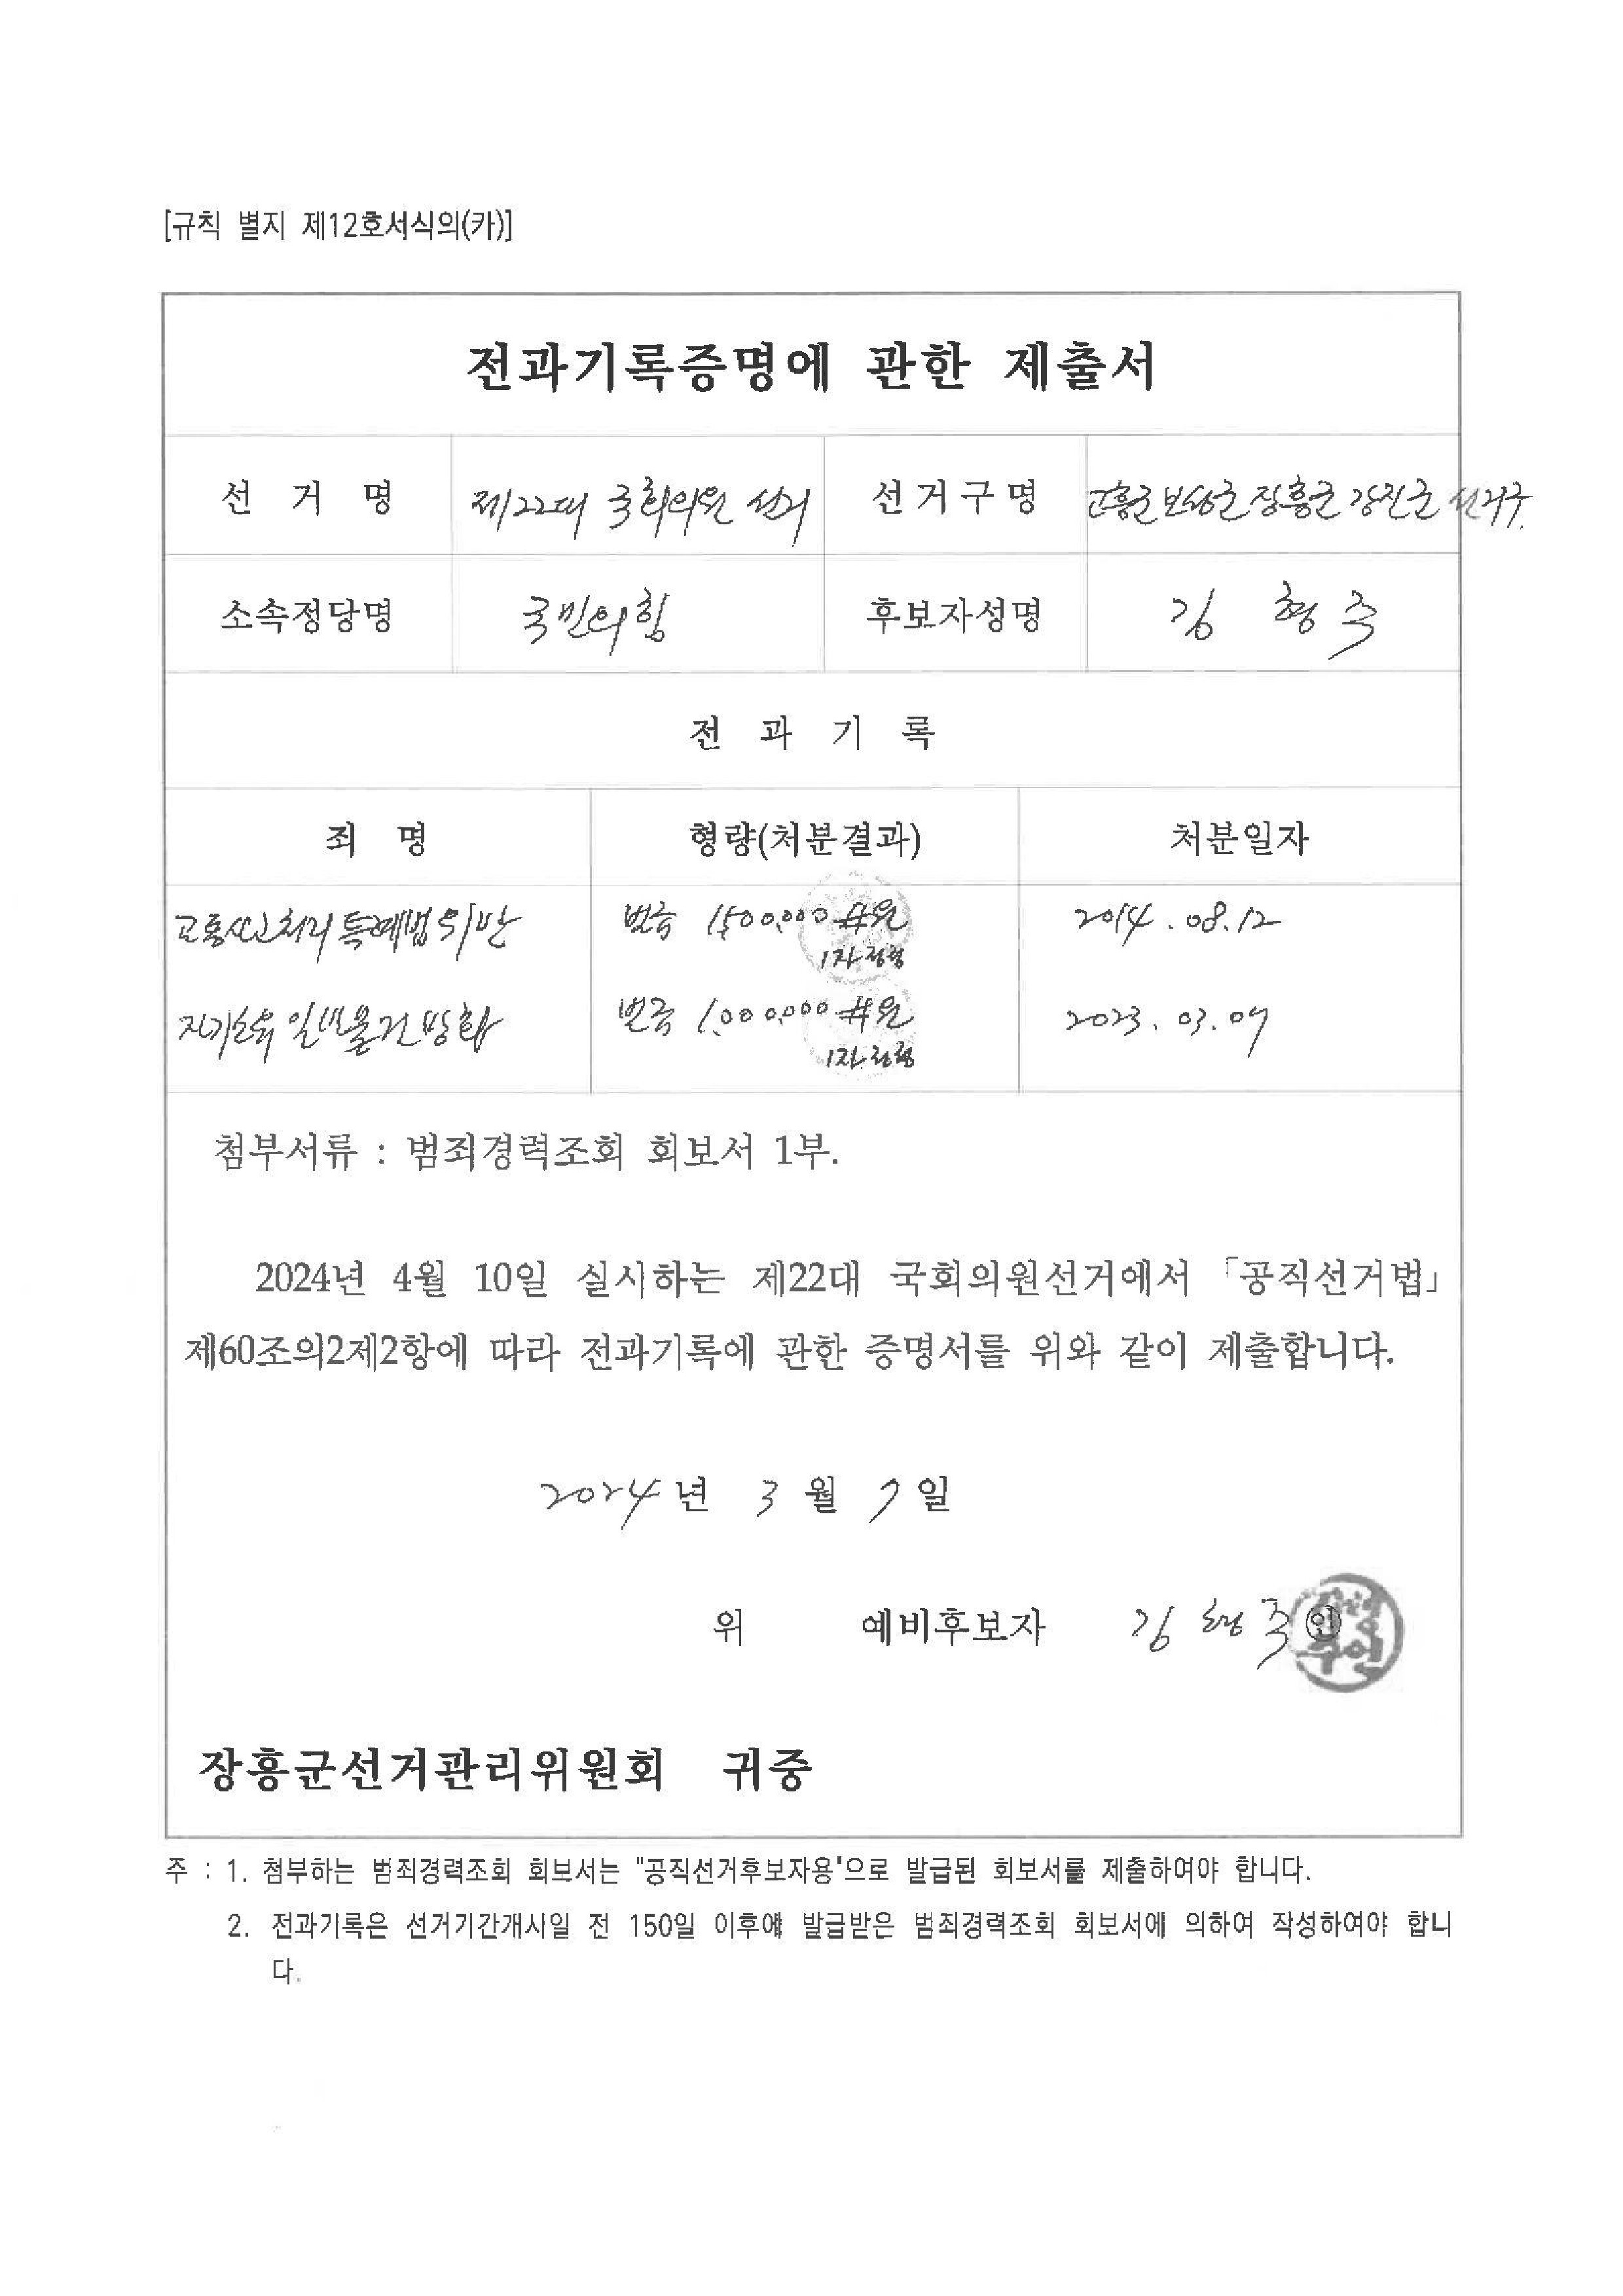 [규칙 별지 제12호서식의(카)]
전과기록증명에 관한 제출서
선 거 명 제22대 국회의원 선거 선거구명 고흥군보성군장흥군강진군 선거구
소속정당명 국민의힘 후보자성명 김 형 주
전 과 기 록
죄 명 형량(처분결과) 처분일자
교통사고처리특례법위반 벌금 1,500,000 원 2014.08.12
1자 정정
자기소유일반물건방화 벌금 1,000,000 원 2023.03.07
1자 정정
첨부서류 : 범죄경력조회 회보서 1부.
2024년 4월 10일 실시하는 제22대 국회의원선거에서 「공직선거법」
제60조의2제2항에 따라 전과기록에 관한 증명서를 위와 같이 제출합니다.
2024년 3월 7일
위 예비후보자 김 형 주 ㊞
장흥군선거관리위원회 귀중
주 : 1. 첨부하는 범죄경력조회 회보서는 "공직선거후보자용"으로 발급된 회보서를 제출하여야 합니다.
2. 전과기록은 선거기간개시일 전 150일 이후에 발급받은 범죄경력조회 회보서에 의하여 작성하여야 합니
다.